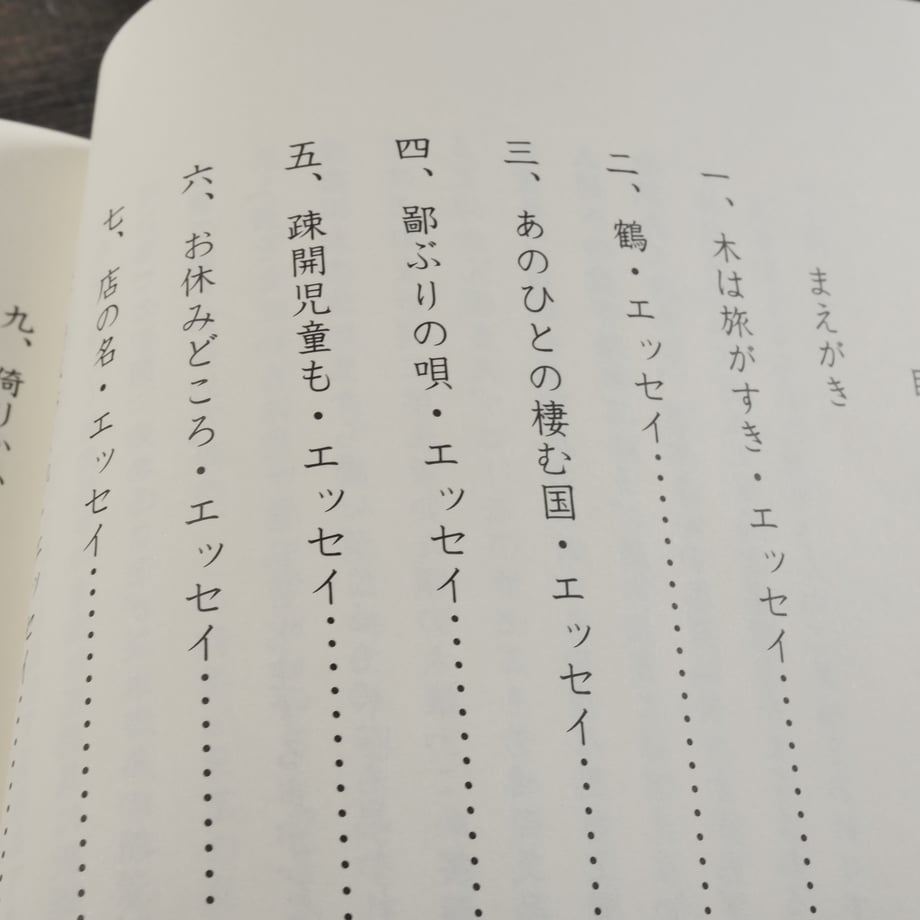 まえがき
一、木は旅がすき・エッセイ
二、鶴・エッセイ
三、あのひとの棲む国・エッセイ
四、鄙ぶりの唄・エッセイ
五、疎開児童も・エッセイ
六、お休みどころ・エッセイ
七、店の名・エッセイ
九、倚りか